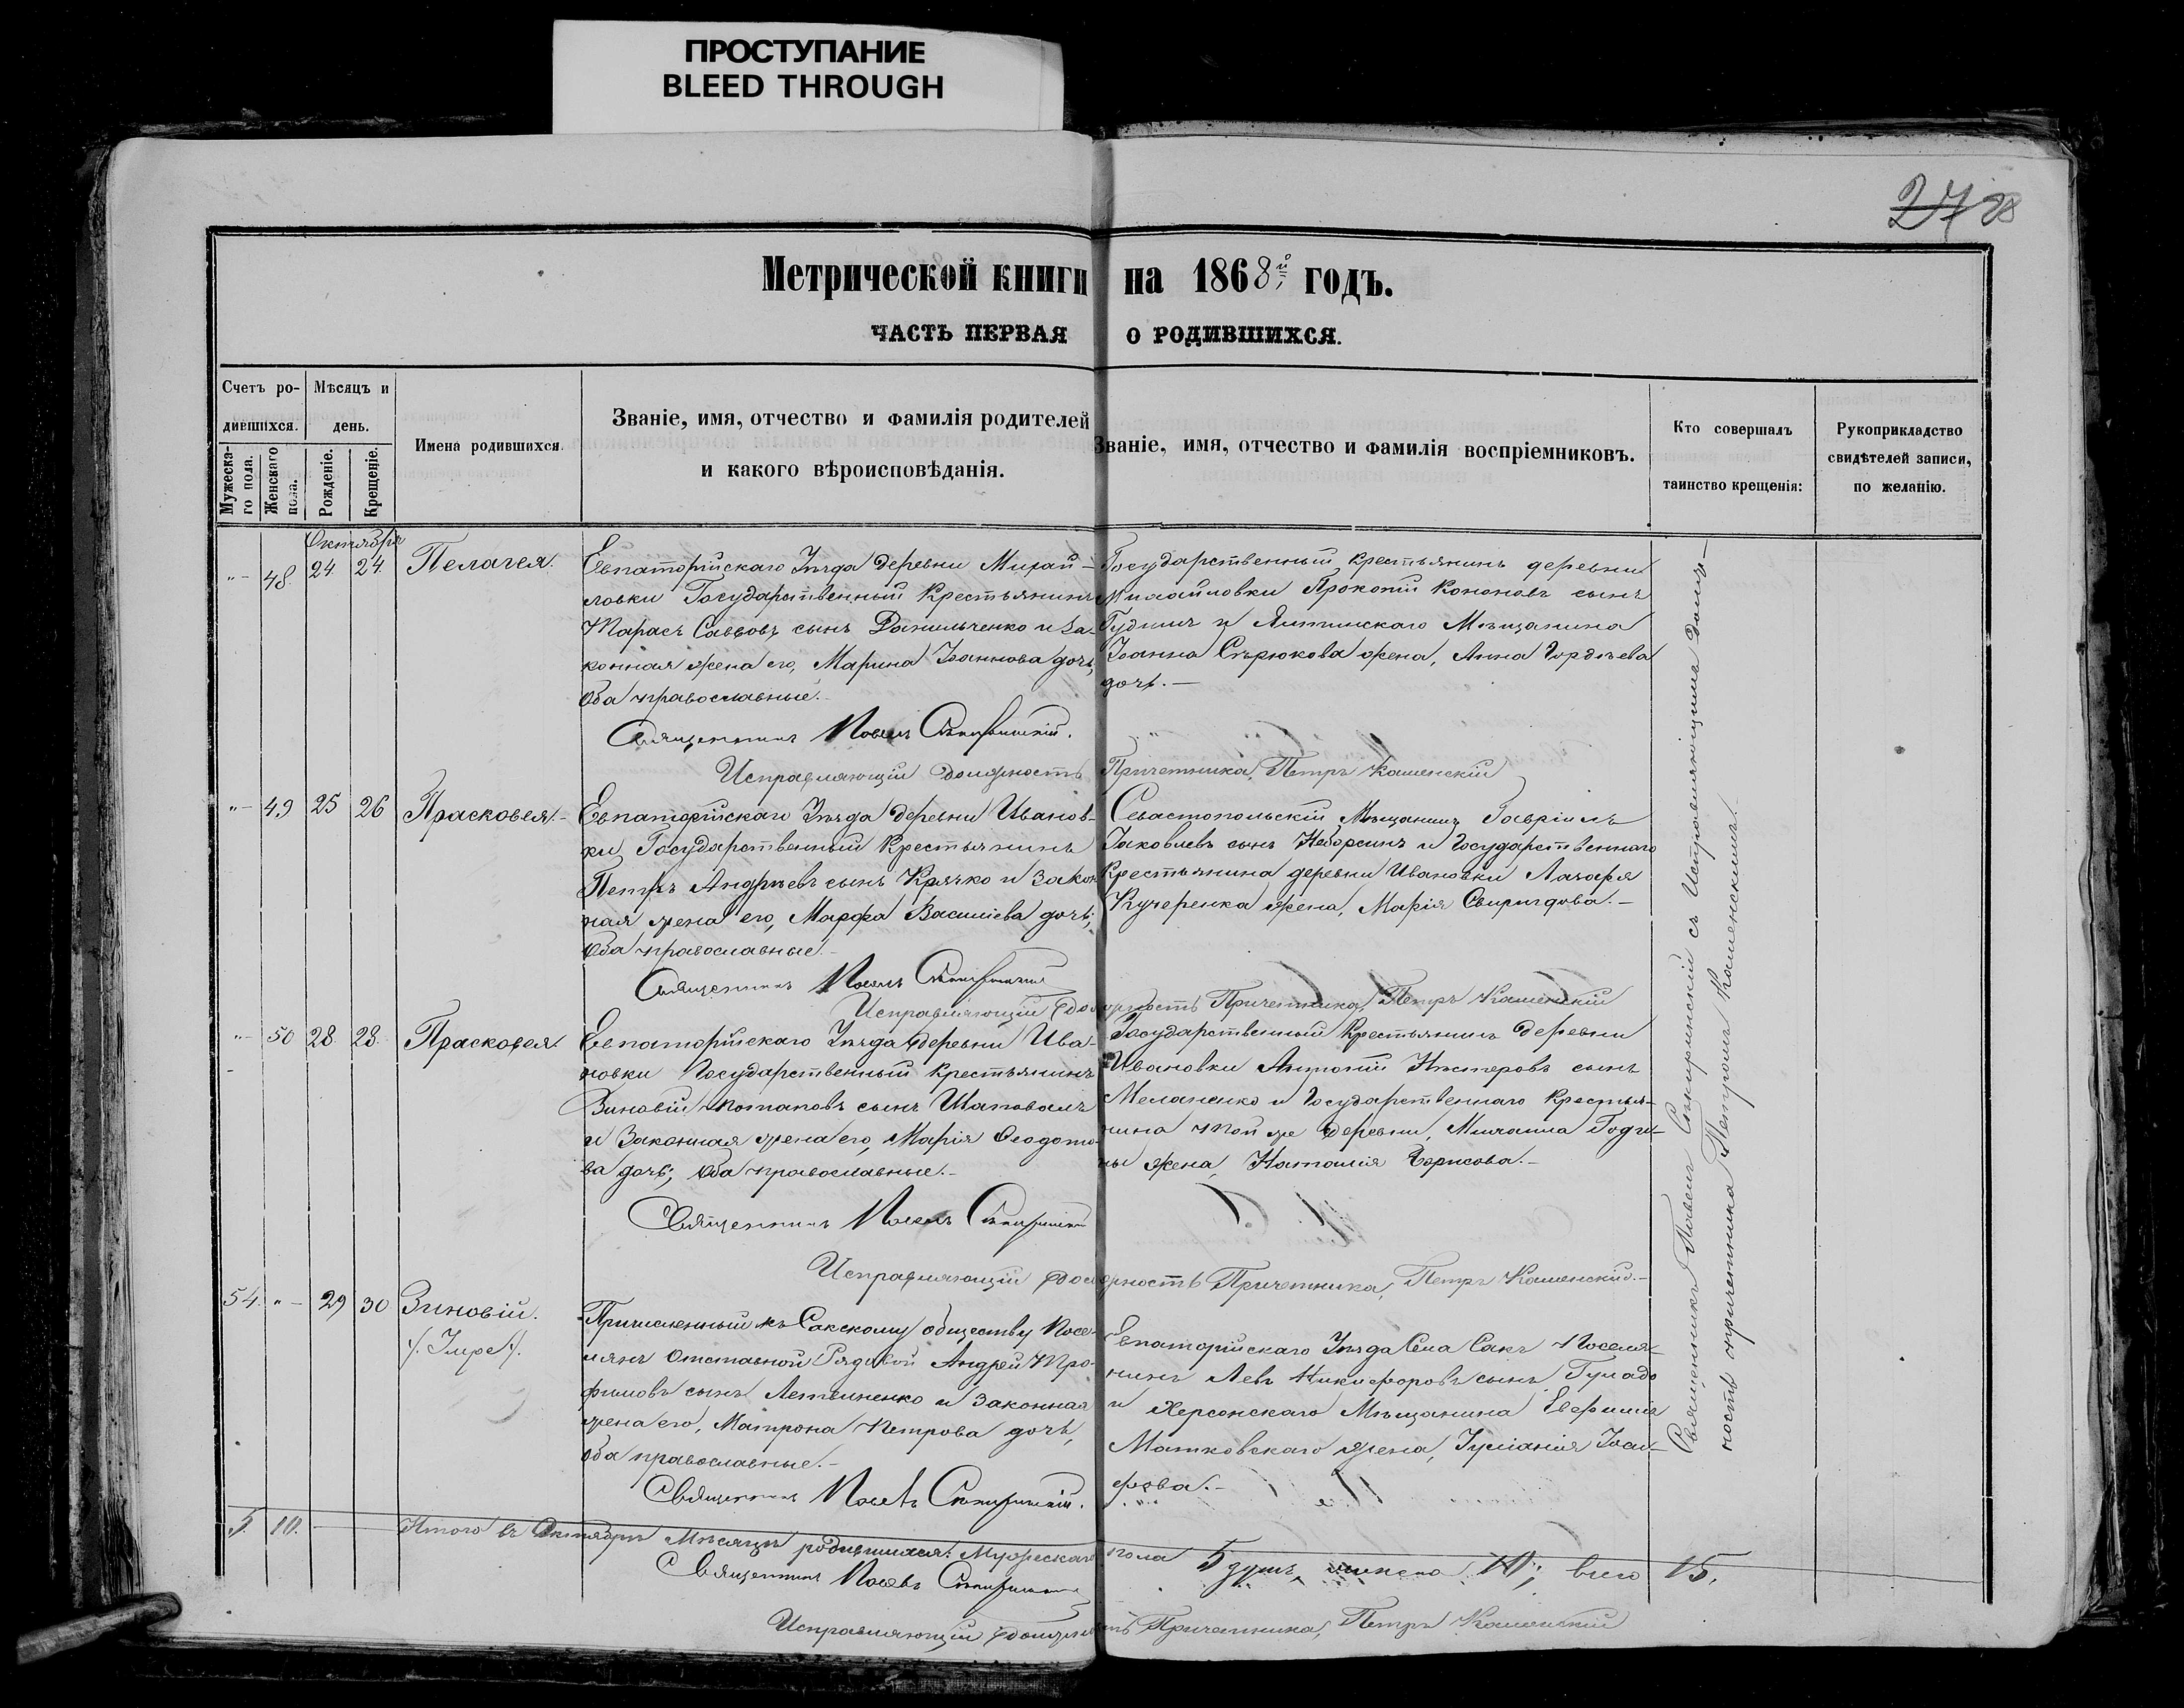 ПРОСТУПАНИЕ
BLEED THROUGH
27 28
Метрической книги на 1868й годъ.
ЧАСТЬ ПЕРВАЯ О РОДИВШИХСЯ.
Счетъ родившихся.
Мужеска-
го пола.
Женскаго
пола.
Мѣсяцъ и
день.
Рожденіе.
Крещеніе.
Имена родившихся.
Званіе, имя, отчество и фамилія родителей
и какого вѣроисповѣданія.
Званіе, имя, отчество и фамилія воспріемниковъ.
Кто совершалъ
таинство крещенія:
Рукоприкладство
свидѣтелей записи,
по желанію.
Октября
"- 48. 24. 24. Пелагея.
Евпаторійскаго Уѣзда деревни Михай-
ловки Государственный Крестьянинъ
Тарасъ Саввовъ сынъ Данильченко и за-
конная жена его, Марина Іоаннова дочь,
оба православные.-
Государственный крестьянинъ деревни
Михайловки Прокопій Кононовъ сынъ
и Ялтинскаго Мѣщанина
Іоанна Сѣрюкова жена, Анна Гордѣева
дочь.-
Священникъ Павелъ
Исправляющій должность Причетника, Петръ Каменскій
"- 49 25 26 Прасковея.-
Евпаторійскаго Уѣзда деревни Иванов-
ки, Государственный Крестьянинъ
Петръ Андрѣевъ сынъ Крячко и Закон
ная жена его, Марфа Василіева дочь;
оба православные.-
Севастопольскій Мѣщанинъ Гавріилъ
Іаковлевъ сынъ и Государственнаго
Крестьянина деревни Ивановки Лазаря
Кучеренка жена, Марія Свиридова.-
Священникъ Павелъ
Исправляющій должность Причетника, Петръ Каменскій
"- 50 28. 28. Прасковея
Евпаторійскаго Уѣзда деревни Ива-
новки Государственный крестьянинъ
Зиновій Потаповъ сынъ Шаповалъ
и Законная жена его, Марія Ѳеодото-
ва дочь; оба православные.-
Государственный Крестьянинъ деревни
Ивановки Антоній Нестеровъ сынъ
Меланенко и Государственнаго крестья-
нина той же деревни, Михаила Годи-
ны жена, Наталія Борисова.-
Священникъ Павелъ
Исправляющій должность Причетника, Петръ Каменскій.-
54. "- 29 30 Зиновій.
Причисленный къ Сакскому обществу Посе-
лянъ Отставной Рядовой Андрей Тро-
фимовъ сынъ Летченко и Законная
жена его, Матрона Петрова дочь,
оба православные.-
Евпаторійскаго Уѣзда Села Сакъ Поселя-
нинъ Левъ Никифоровъ сынъ
и Херсонскаго Мѣщанина Евфимія
Матковскаго жена, Іуліанія Іоси-
фова.-
Священникъ Павелъ
5. 10. Итого въ Октябрѣ Мѣсяцѣ родившихся: Мужескаго пола 5 душъ, женска 10; всего 15.
Священникъ Павелъ
Исправляющій должность Причетника, Петръ Каменскій
Священникъ Павелъ съ Исправляющимъ долж-
ность причетника Петромъ Каменскимъ.